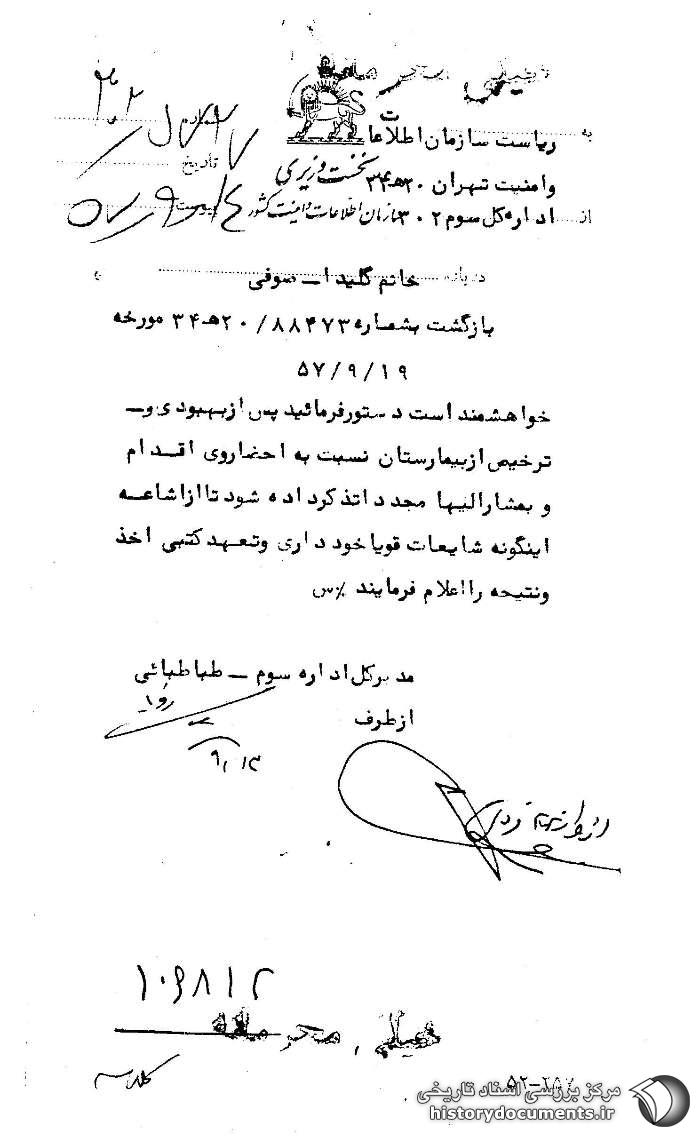 خیلی محرمانه
شماره
به ریاست سازمان اطلاعات
تاریخ
وامنیت تهران ۲۰هـ۳۴ نخست وزیری
از اداره کل سوم ۳۰۲ سازمان اطلاعات و امنیت کشور پیوست
درباره خانم گلیدا ـ صوفی
بازگشت بشماره ۸۸۴۷۳/ ۲۰هـ۳۴ مورخه
۵۷/۹/۱۹
خواهشمند است دستورفرمائید پس ازبهبودی و ـ
ترخیص ازبیمارستان نسبت به احضاروی اقدام
و بمشارالیها مجدد اتذکرداده شود تاازاشاعه
اینگونه شایعات قویاخودداری وتعهدکتبی اخذ
ونتیجه رااعلام فرمایند /س
مدیرکل اداره سوم ـ طباطبائی
ازطرف
۱۰۶۸۱۲
خیلی محرمانه
کلاسه
مرکز بررسی اسناد تاریخی
historydocuments.ir